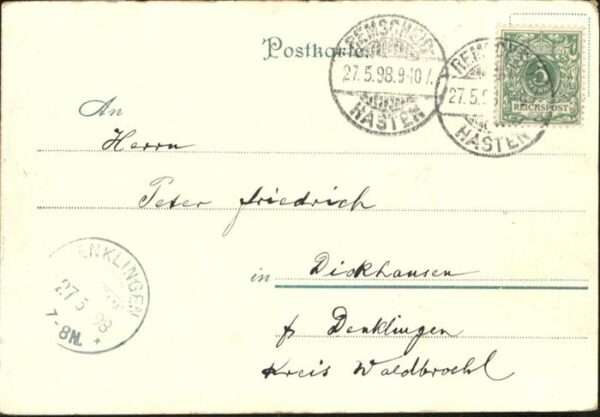 Postkarte.
REMSCHEID
27.5.98.9-10V.
HASTEN
27.5.9
HASTEN
5
REICHSPOST
An
Herrn
Peter Friedrich
in Dickhausen
p Denklingen
Kreis Waldbroehl
ENKLINGEN
27 5 98
7-8N.